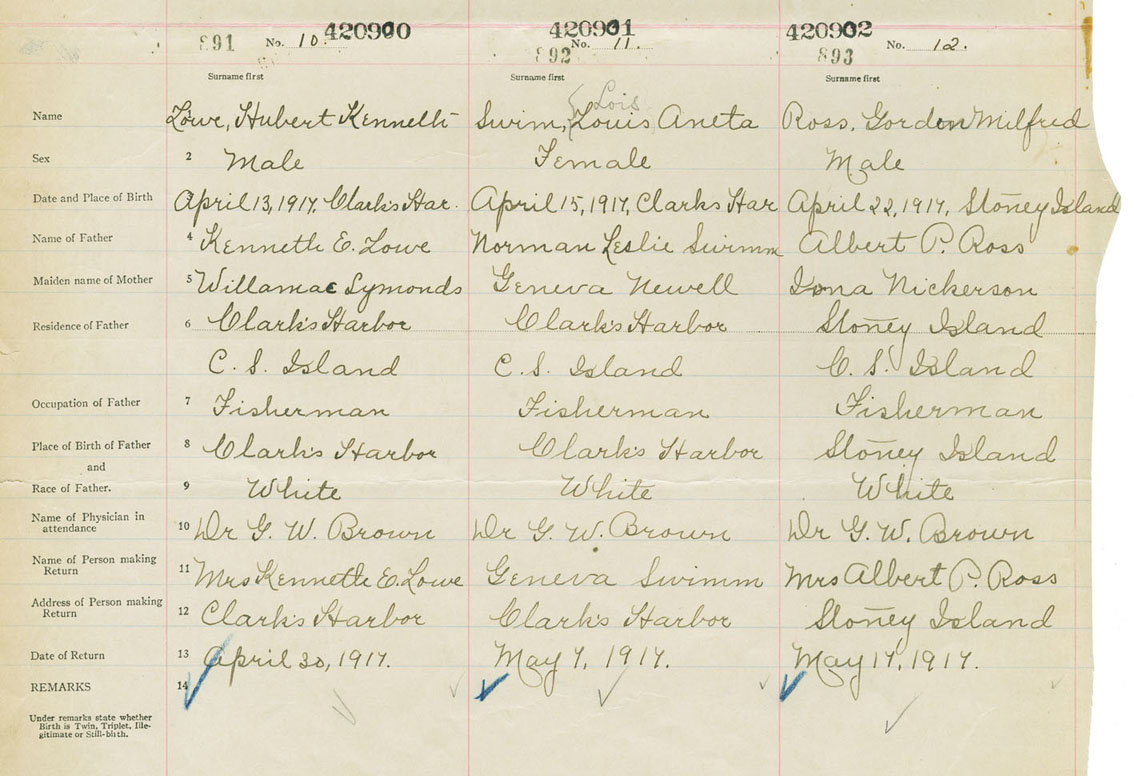 420900 420901 420902
891 No. 10. 892 No. 11. 893 No. 12.
Surname first Surname first Surname first
Lois
Name Lowe, Hubert Kenneth Swim, Louis Aneta Ross, Gordon Milfred
Sex 2 Male Female Male
Date and Place of Birth April 13, 1917, Clark's Har. April 15, 1917, Clarks Har April 22, 1917, Stoney Island
Name of Father 4 Kenneth E. Lowe Norman Leslie Swimm Albert P. Ross
Maiden name of Mother 5 Willamae Symonds Geneva Newell Iona Nickerson
Residence of Father 6 Clark's Harbor Clark's Harbor Stoney Island
C. S. Island C. S. Island C. S. Island
Occupation of Father 7 Fisherman Fisherman Fisherman
Place of Birth of Father 8 Clark's Harbor Clark's Harbor Stoney Island
and
Race of Father. 9 White White White
Name of Physician in
attendance 10 Dr G. W. Brown Dr G. W. Brown Dr G. W. Brown
Name of Person making
Return 11 Mrs Kennette E. Lowe Geneva Swimm Mrs Albert P. Ross
Address of Person making
Return 12 Clark's Harbor Clark's Harbor Stoney Island
Date of Return 13 April 30, 1917. May 7, 1917. May 17, 1917.
REMARKS 14
Under remarks state whether
Birth is Twin, Triplet, Ille-
gitimate or Still-birth.